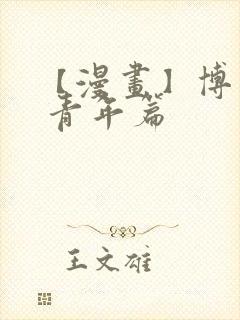 【漫畫】博
青年篇
王文雄